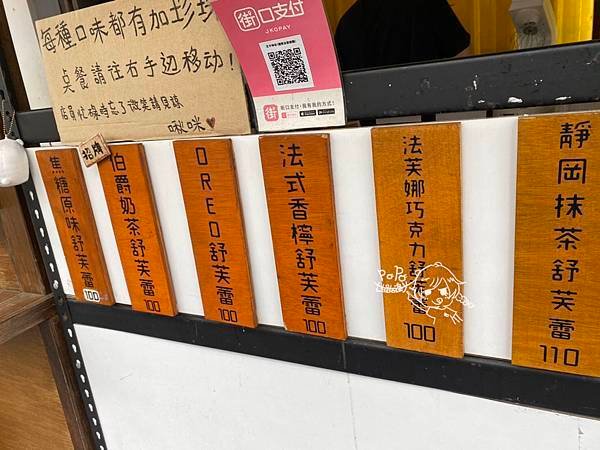 每種口味都有加珍珠
桌餐請往右手边移动!
店員忙碌時忘了微笑請見諒
啾咪♥
街口支付
JKOPAY
街口支付，我有我的方式!
招牌
焦糖原味舒芙蕾
100
伯爵奶茶舒芙蕾
100
OREO舒芙蕾
100
法式香檸舒芙蕾
100
法芙娜巧克力舒芙蕾
100
靜岡抹茶舒芙蕾
110
PoPo